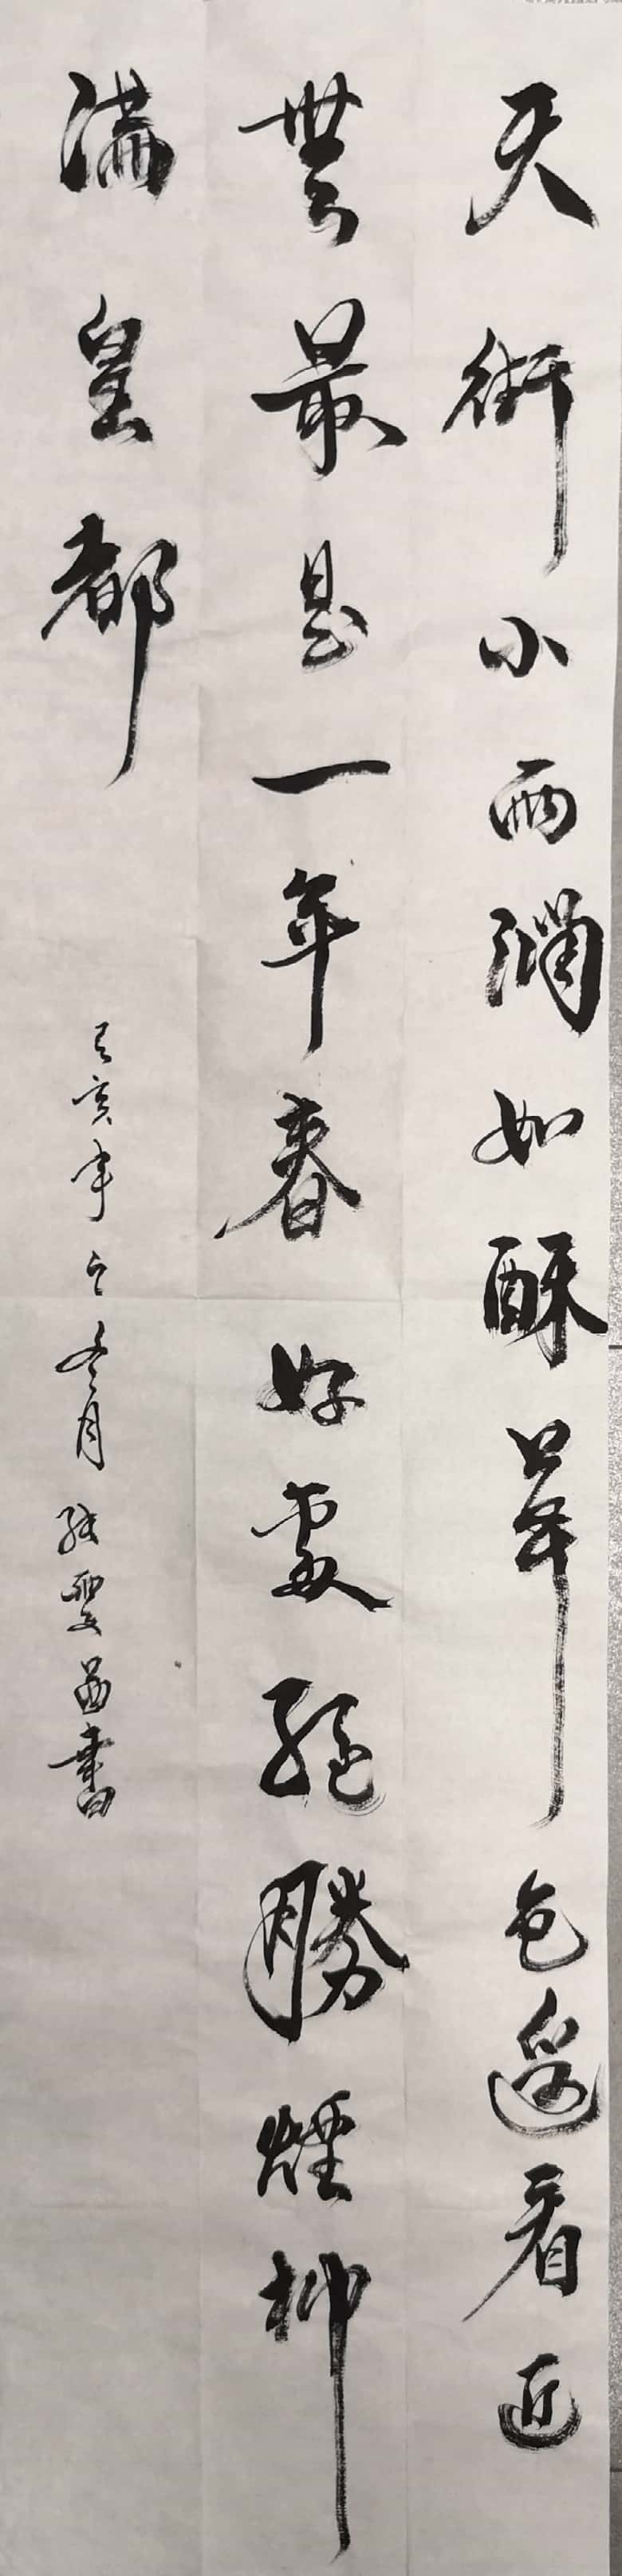 天街小雨潤如酥草色遙看近
無最是一年春好處絕勝煙柳
滿皇都
己亥年之冬月 書